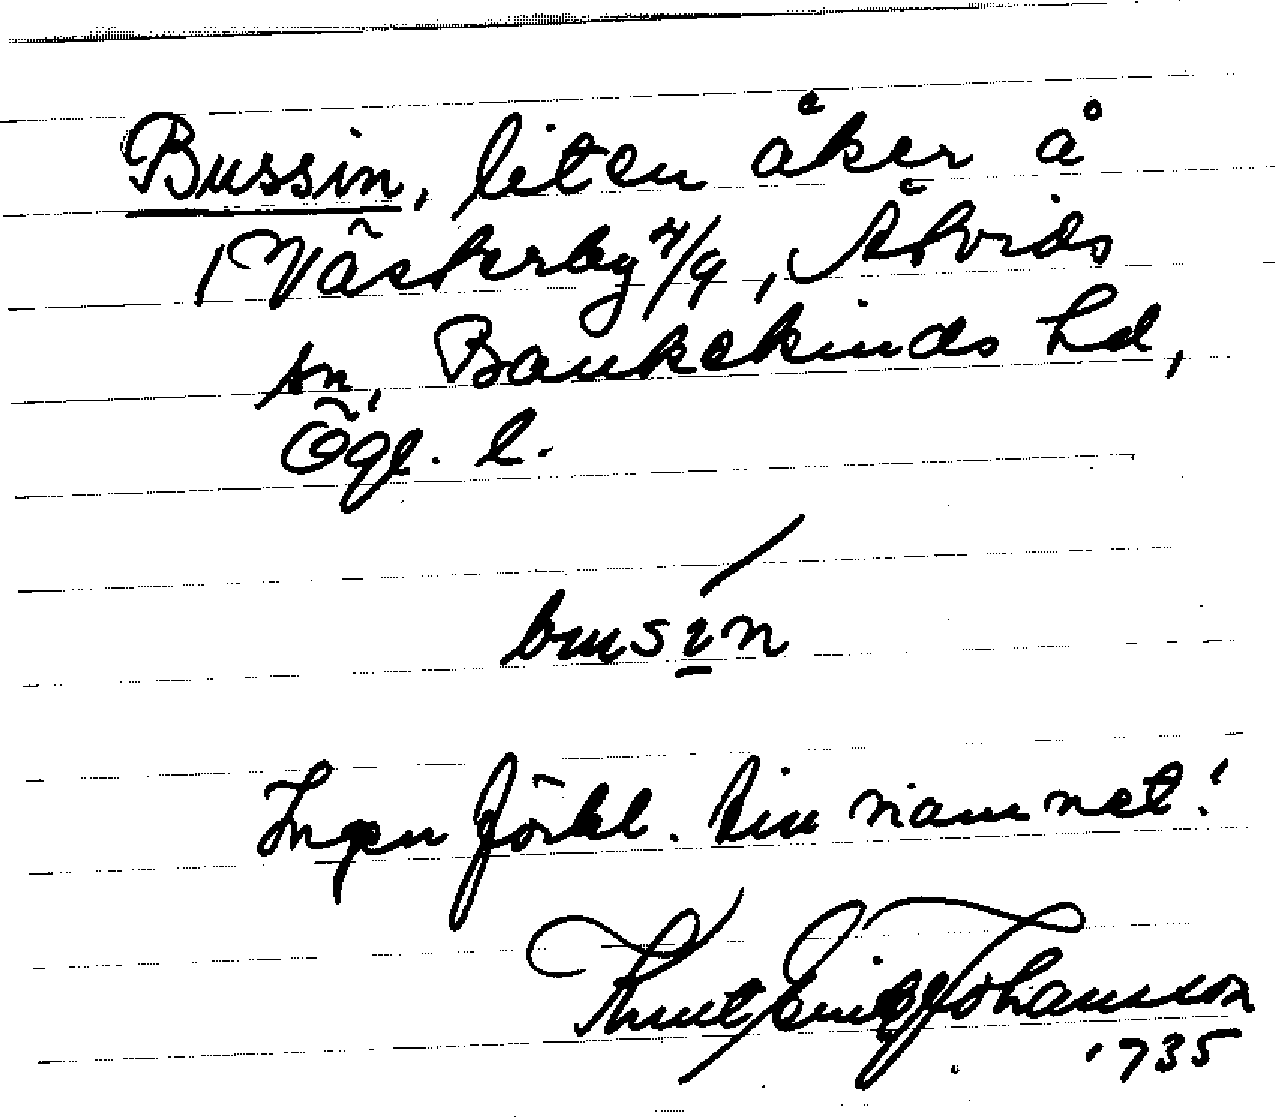 Bussin, liten åker å
Västerby 4/9, Åtvids
sn, Bankekinds hd,
Ögl. l.
busin
Ingen förkl. till namnet!
Knut Erik Johansson
1735